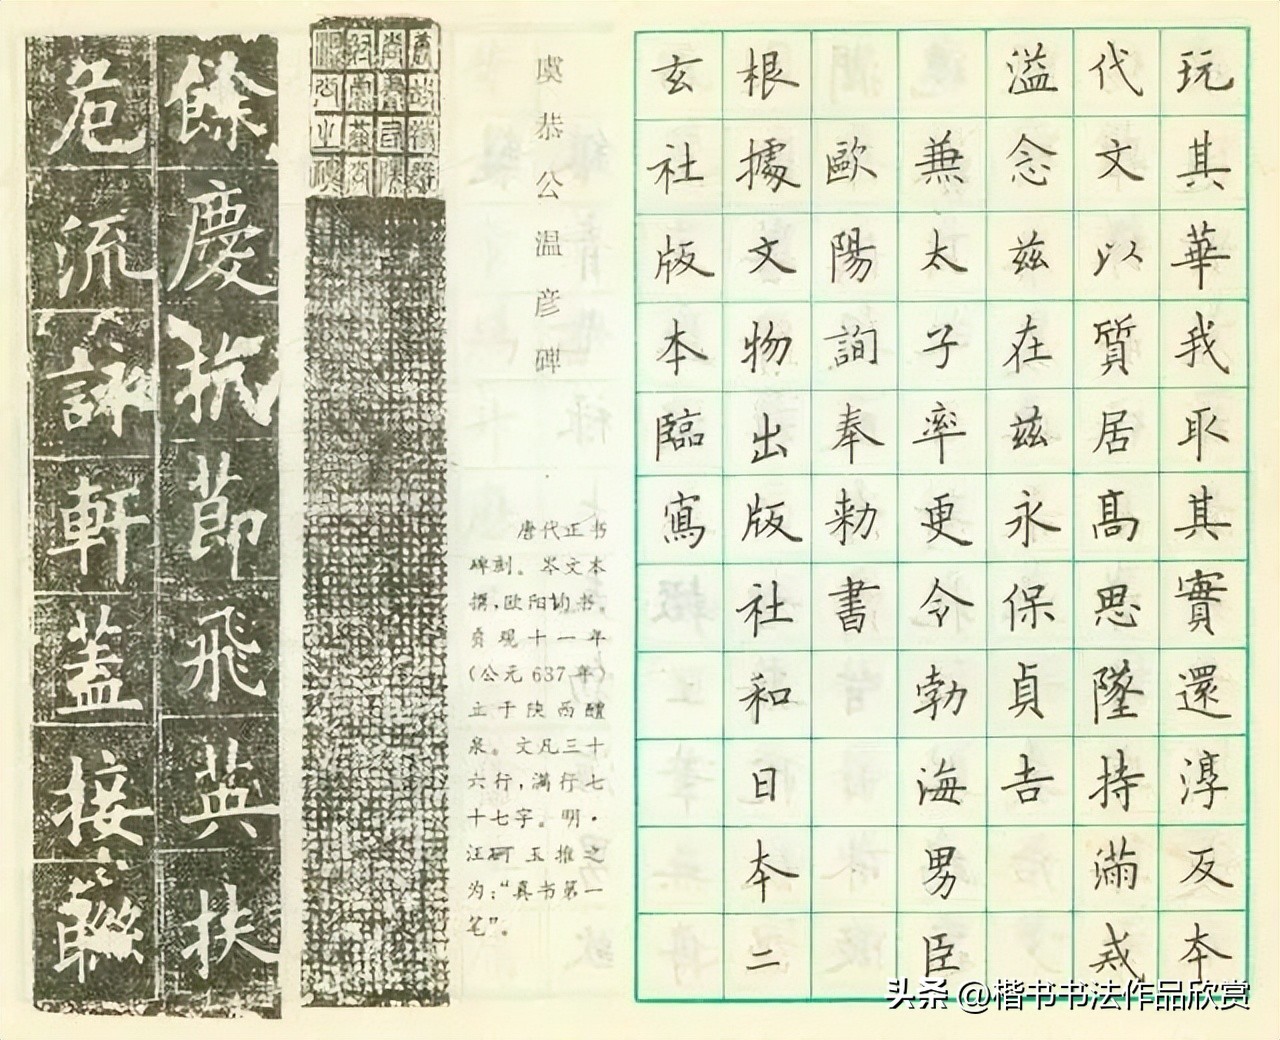 玩其華我取其實還淳反本
代文以質居高思墜持滿戒
溢念茲在茲永保貞吉
兼太子率更令勃海男臣
歐陽詢奉勅書
根據文物出版社和日本二
玄社版本臨寫
虞恭公温彦碑
唐代正书
碑刻。岑文本
撰,欧阳询书。
贞观十一年
(公元637年)
立于陕西醴
泉。文凡三十
六行,满行七
十七字。明·
汪砢玉推之
为:“真书第一
笔”。
餘慶抗節飛英扶
危流詠軒蓋接聯
头条 @楷书书法作品欣赏